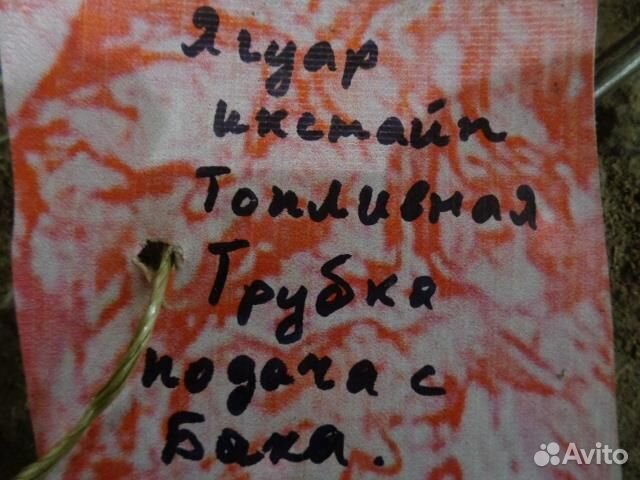 Ягуар
икстайп
Топливная
Трубка
подача с
Бака.
Avito